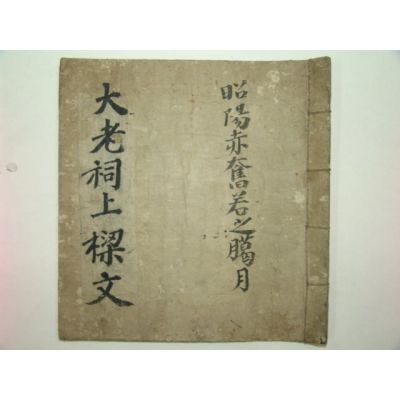 昭陽赤奮若之臈月
大老祠上樑文